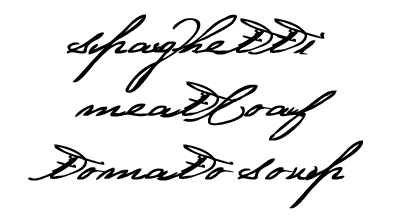 spaghetti
meatloaf
tomato soup